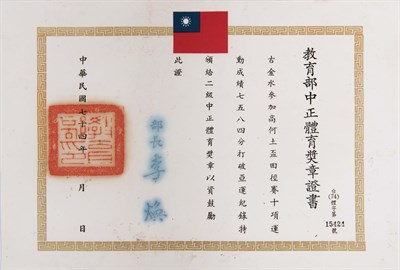 教育部中正體育獎章證書
台(74)體字第15424號
古金水參加高何土盃田徑賽十項運
動成績七五八四分打破亞運紀錄特
頒給二級中正體育獎章以資鼓勵
此證
部長 李煥
中華民國七十四年 月 日